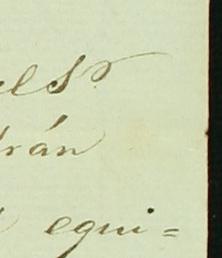 el Sr
drán
equi=